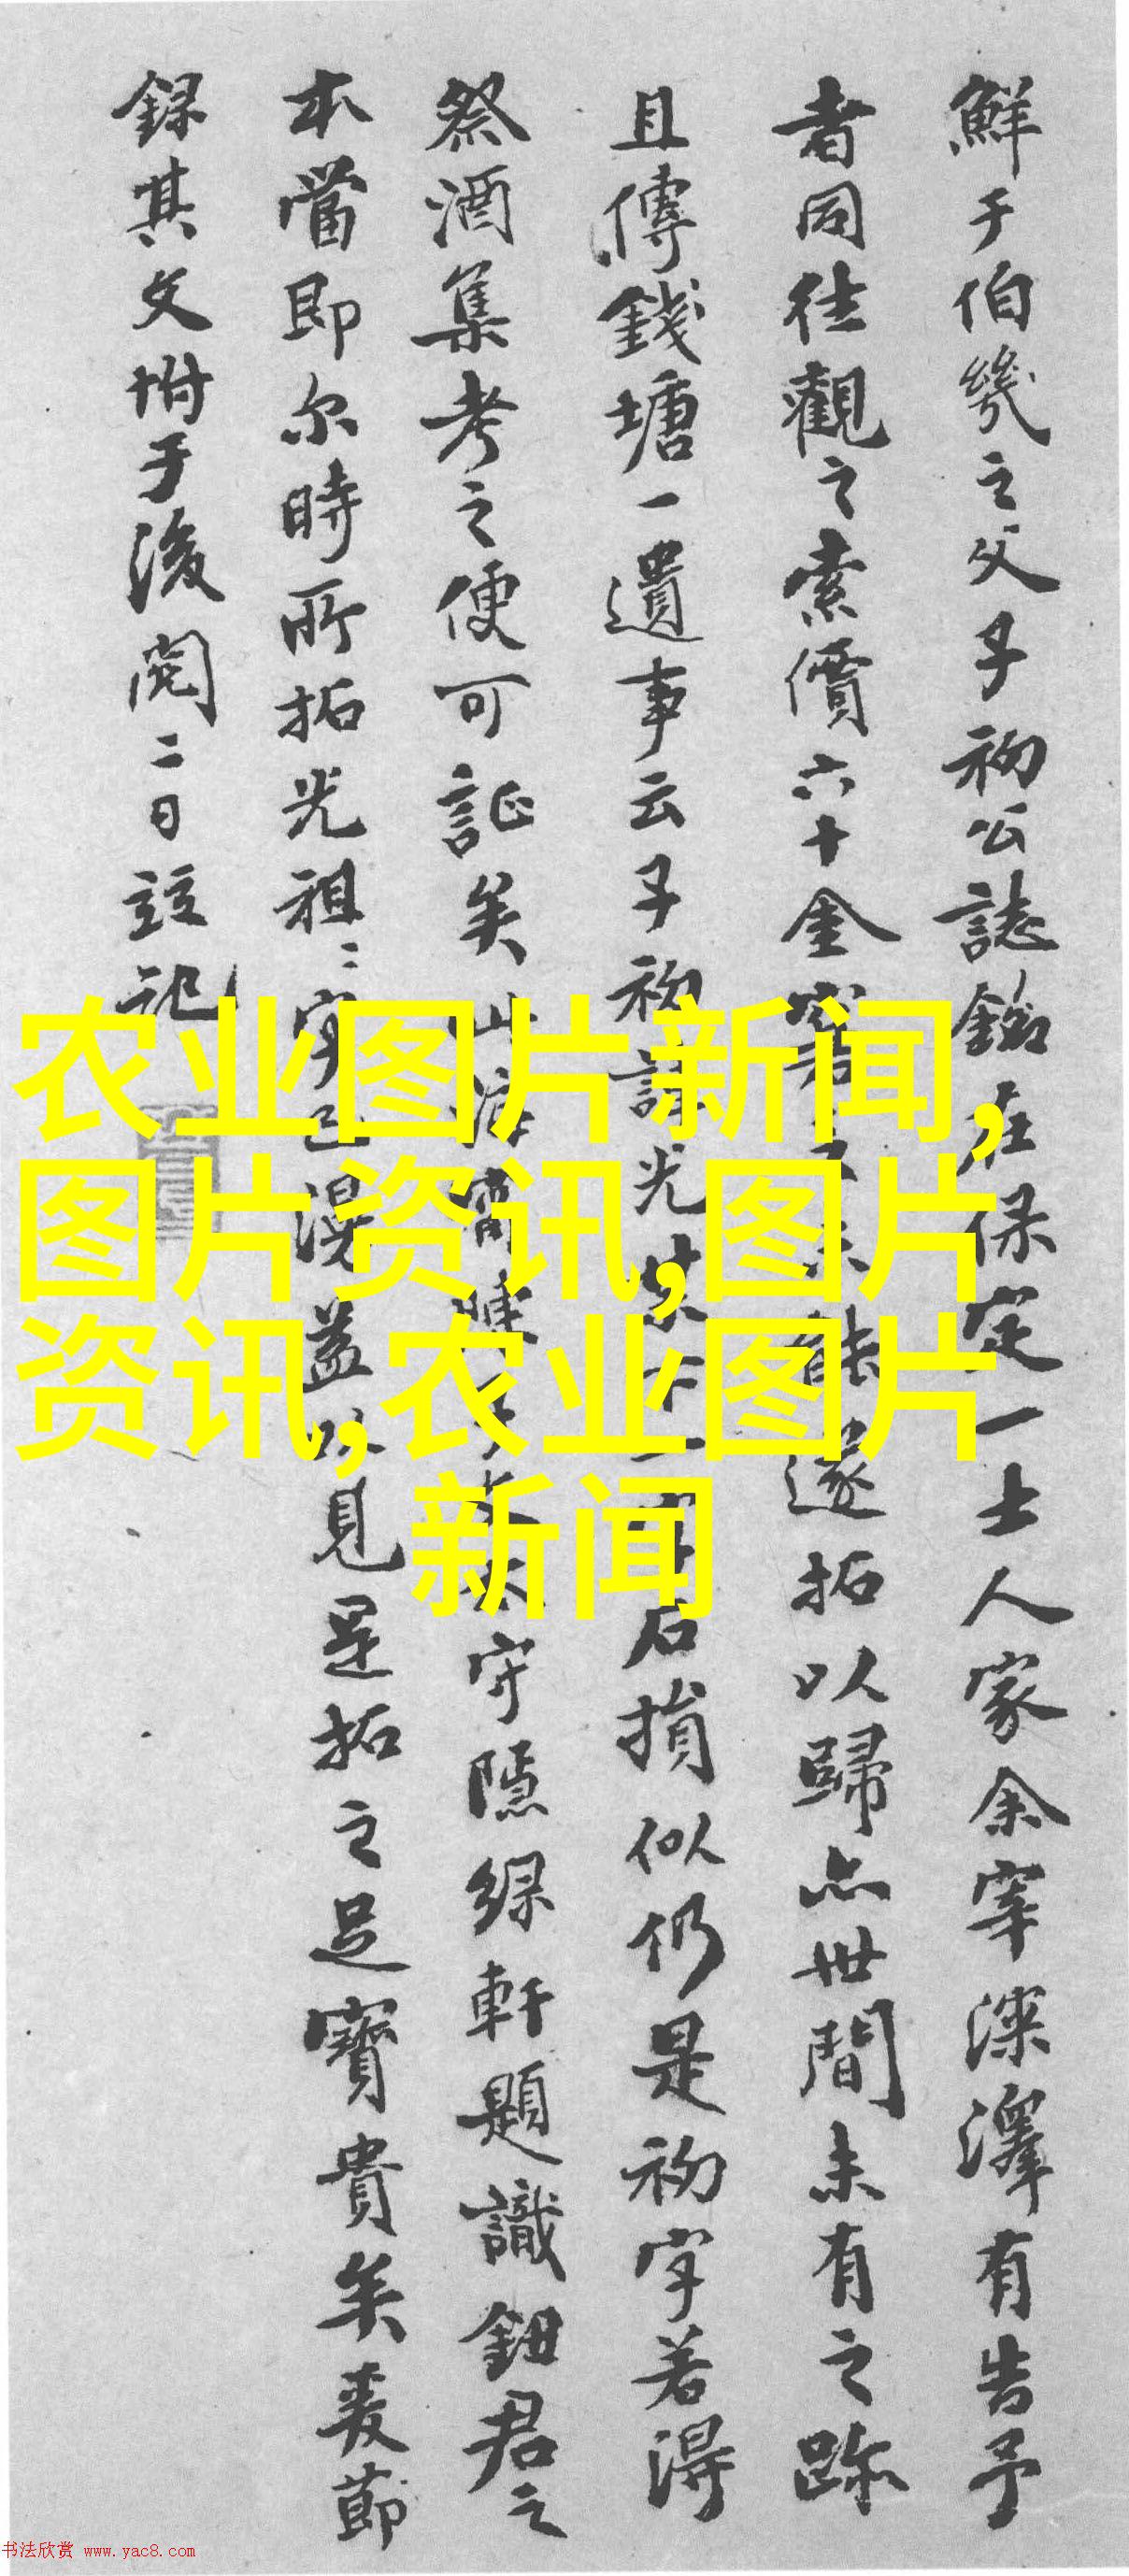 鮮于伯幾之父子初公誌銘在保定一士人家余宰深澤有告予
者同往觀之索價六十金窘未能遂拓以歸亦世間未有之跡
且傳錢塘一遺事云子初諱光 石損似仍是初字若得
祭酒集考之便可証矣 守隱綠軒題識鈕君之
本當即尔時所拓光祖二字已漫蓋以見是拓之足寶貴矣爰節
錄其文坿于後閏二日 記
农业图片新闻,
图片资讯,图片
资讯,农业图片
新闻
书法欣赏 www.yac8.com